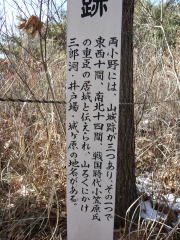 跡
両小野には、山城跡が三つあり、その一つで
東西十間、南北十四間、戦国時代小笠原氏
の重臣の居城と伝えられ、山ろくにかけ
三郎洞・井戸場・城ヶ原の地名がある。